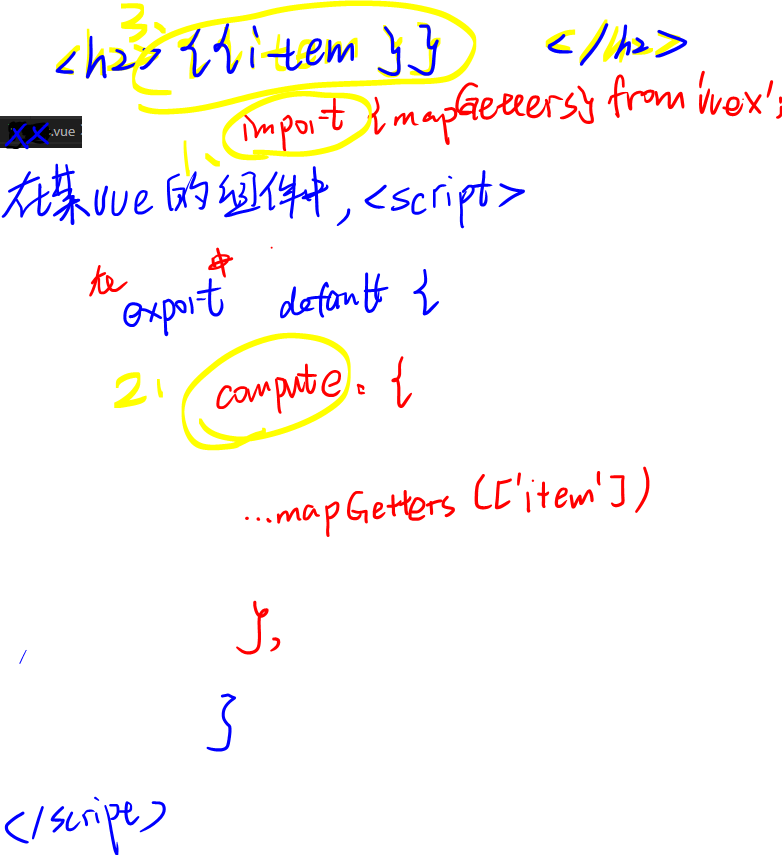 3.
<h2> {{item}} </h2>
1. import {mapGetters} from 'vuex';
xx.vue
在某vue的组件中,<script>
在export中 default {
2. compute: {
...mapGetters(['item'])
},
}
</script>